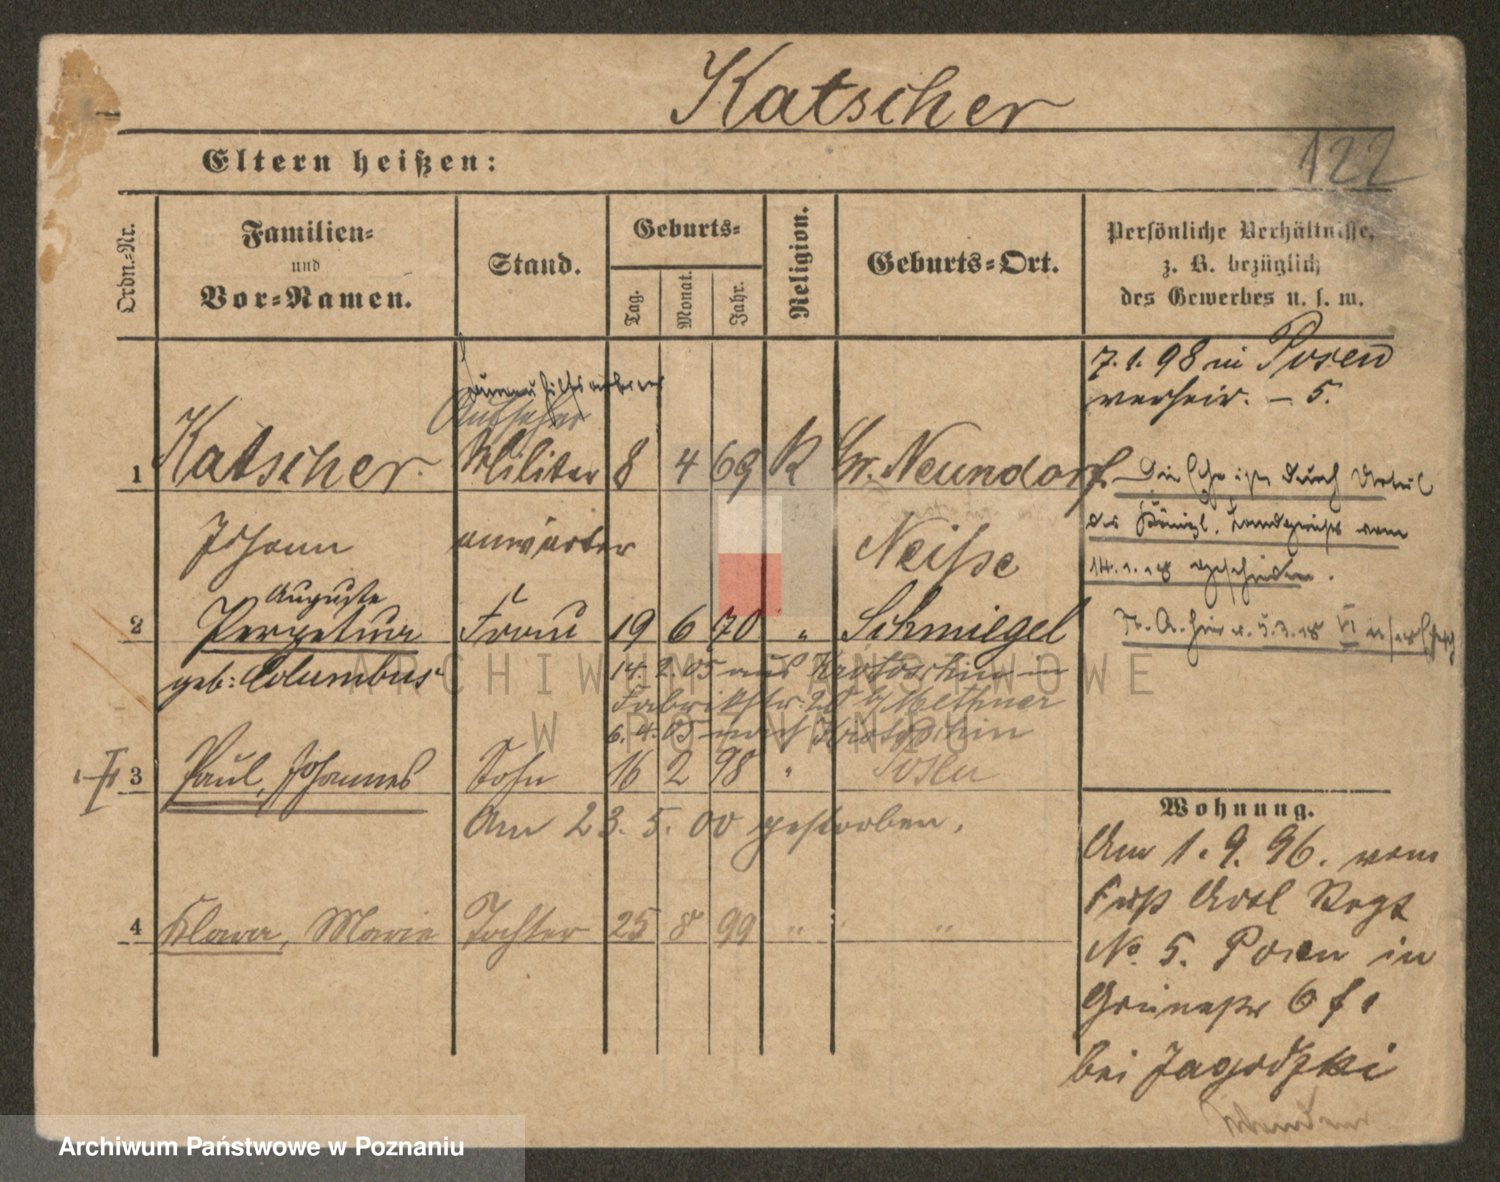 Katscher
122
Eltern heißen:
Ordn.-Nr.
Familien-
und
Vor-Namen.
Stand.
Geburts-
Tag.
Monat.
Jahr.
Religion.
Geburts-Ort.
Persönliche Verhältnisse,
z. B. bezüglich
des Gewerbes u. s. w.
7.1.98 in Posen
verheir. – 5.
Aufseher
1 Katscher. Militär 8 4 69 K Gr. Neundorf
Johann anwärter Neisse
Die Ehe ist durch Urteil
des Königl. Landgerichts vom
14.1.18 geschieden.
Auguste
2 Perpetua Frau 19 6 70 " Schmiegel
geb: Columbus
14.2.05 aus Krotoschin in
Fabrikstr. 20 b/ Methner
6.4.05 nach Krotoschin
3 Paul, Johannes Sohn 16 2 98 " Posen
Am 23.5.00 gestorben.
4 Klara, Marie Tochter 25 8 99 " "
Wohnung.
Am 1.9.96. vom
Fuß Artl Regt
No. 5. Posen in
Grünestr 6 f.
bei Jagodzki
ARCHIWUM PAŃSTWOWE
W POZNANIU
Archiwum Państwowe w Poznaniu